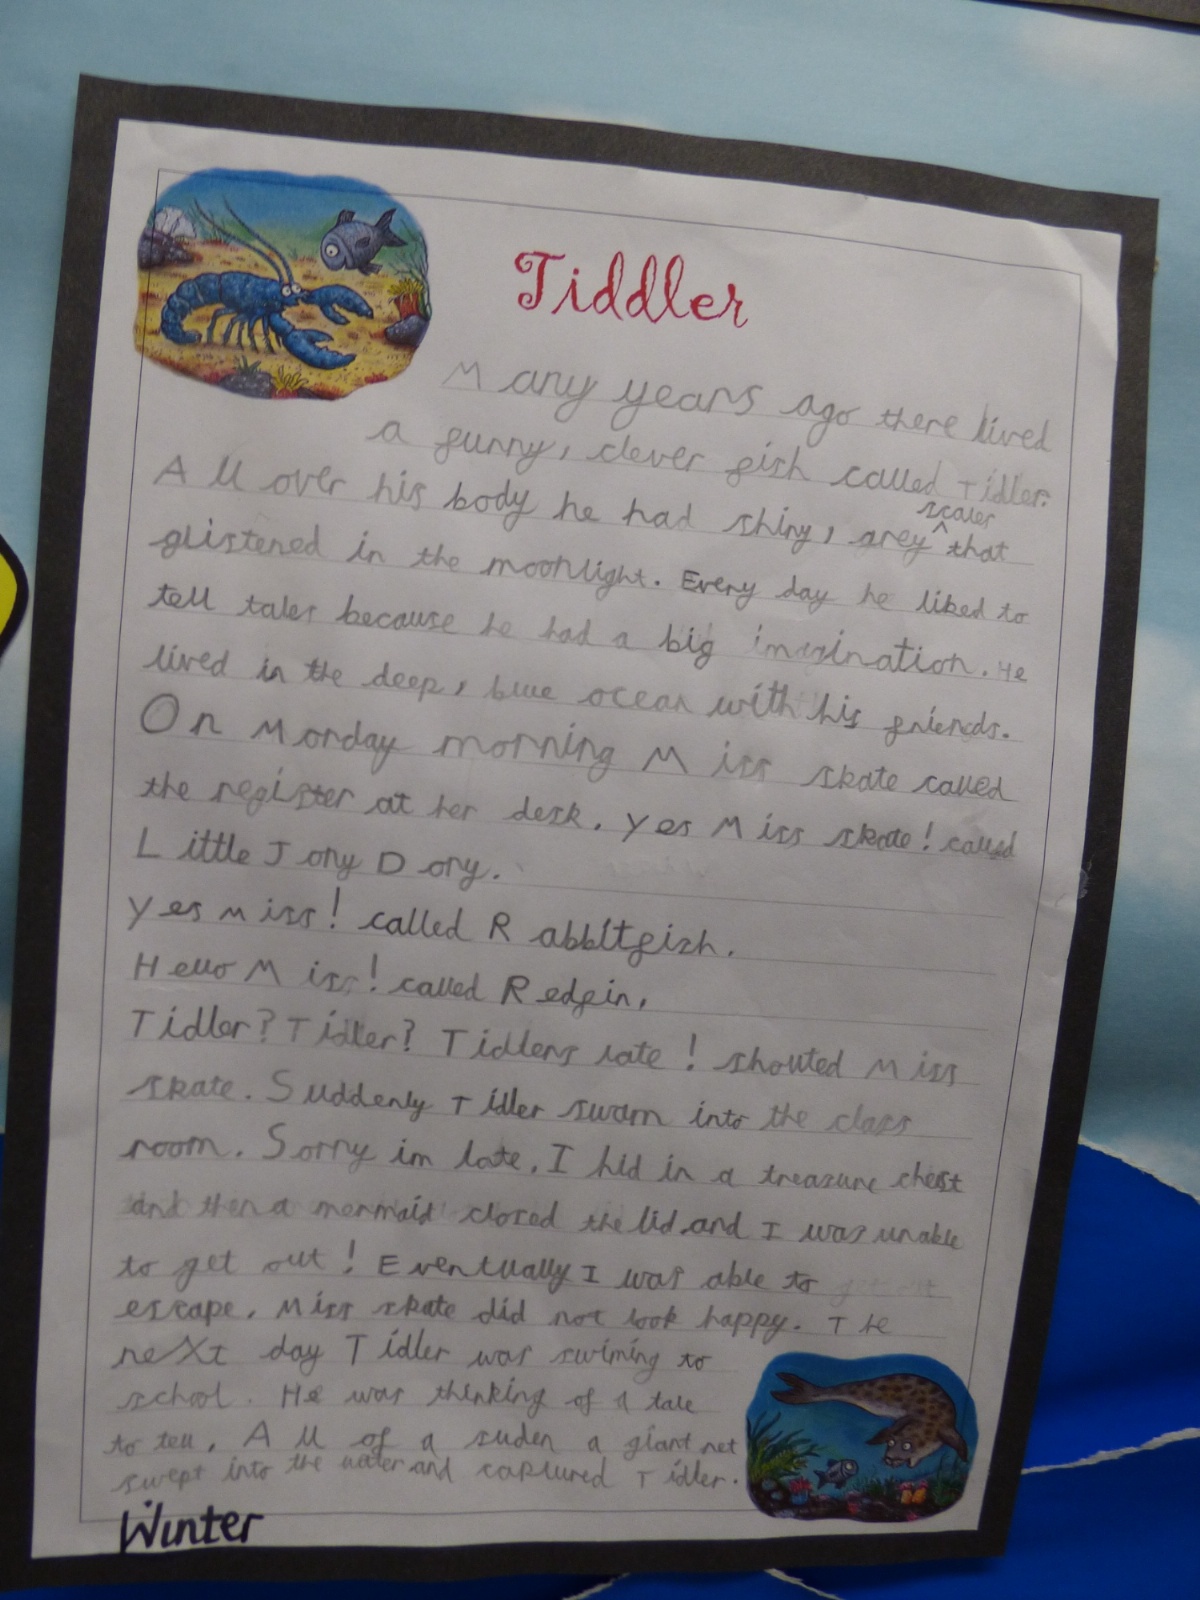 Tiddler
Many years ago there lived
a funny, clever fish called Tidler.
All over his body he had shiny, grey ^ scales that
glistened in the moonlight. Every day he liked to
tell tales because he had a big imagination. He
lived in the deep, blue ocean with his friends.
On Monday morning Miss skate called
the register at her desk. yes Miss skate! called
Little Jony Dory.
yes Miss! called Rabbitfish.
Hello Miss! called Redfin.
Tidler? Tidler? Tidlers late! shouted Miss
skate. Suddenly Tidler swam into the class
room. Sorry im late. I hid in a treasure chest
and then a mermaid closed the lid and I was unable
to get out! Eventually I was able to
escape. Miss skate did not look happy. The
next day Tidler was swiming to
school. He was thinking of a tale
to tell. All of a suden a giant net
swept into the water and captured Tidler.
Winter